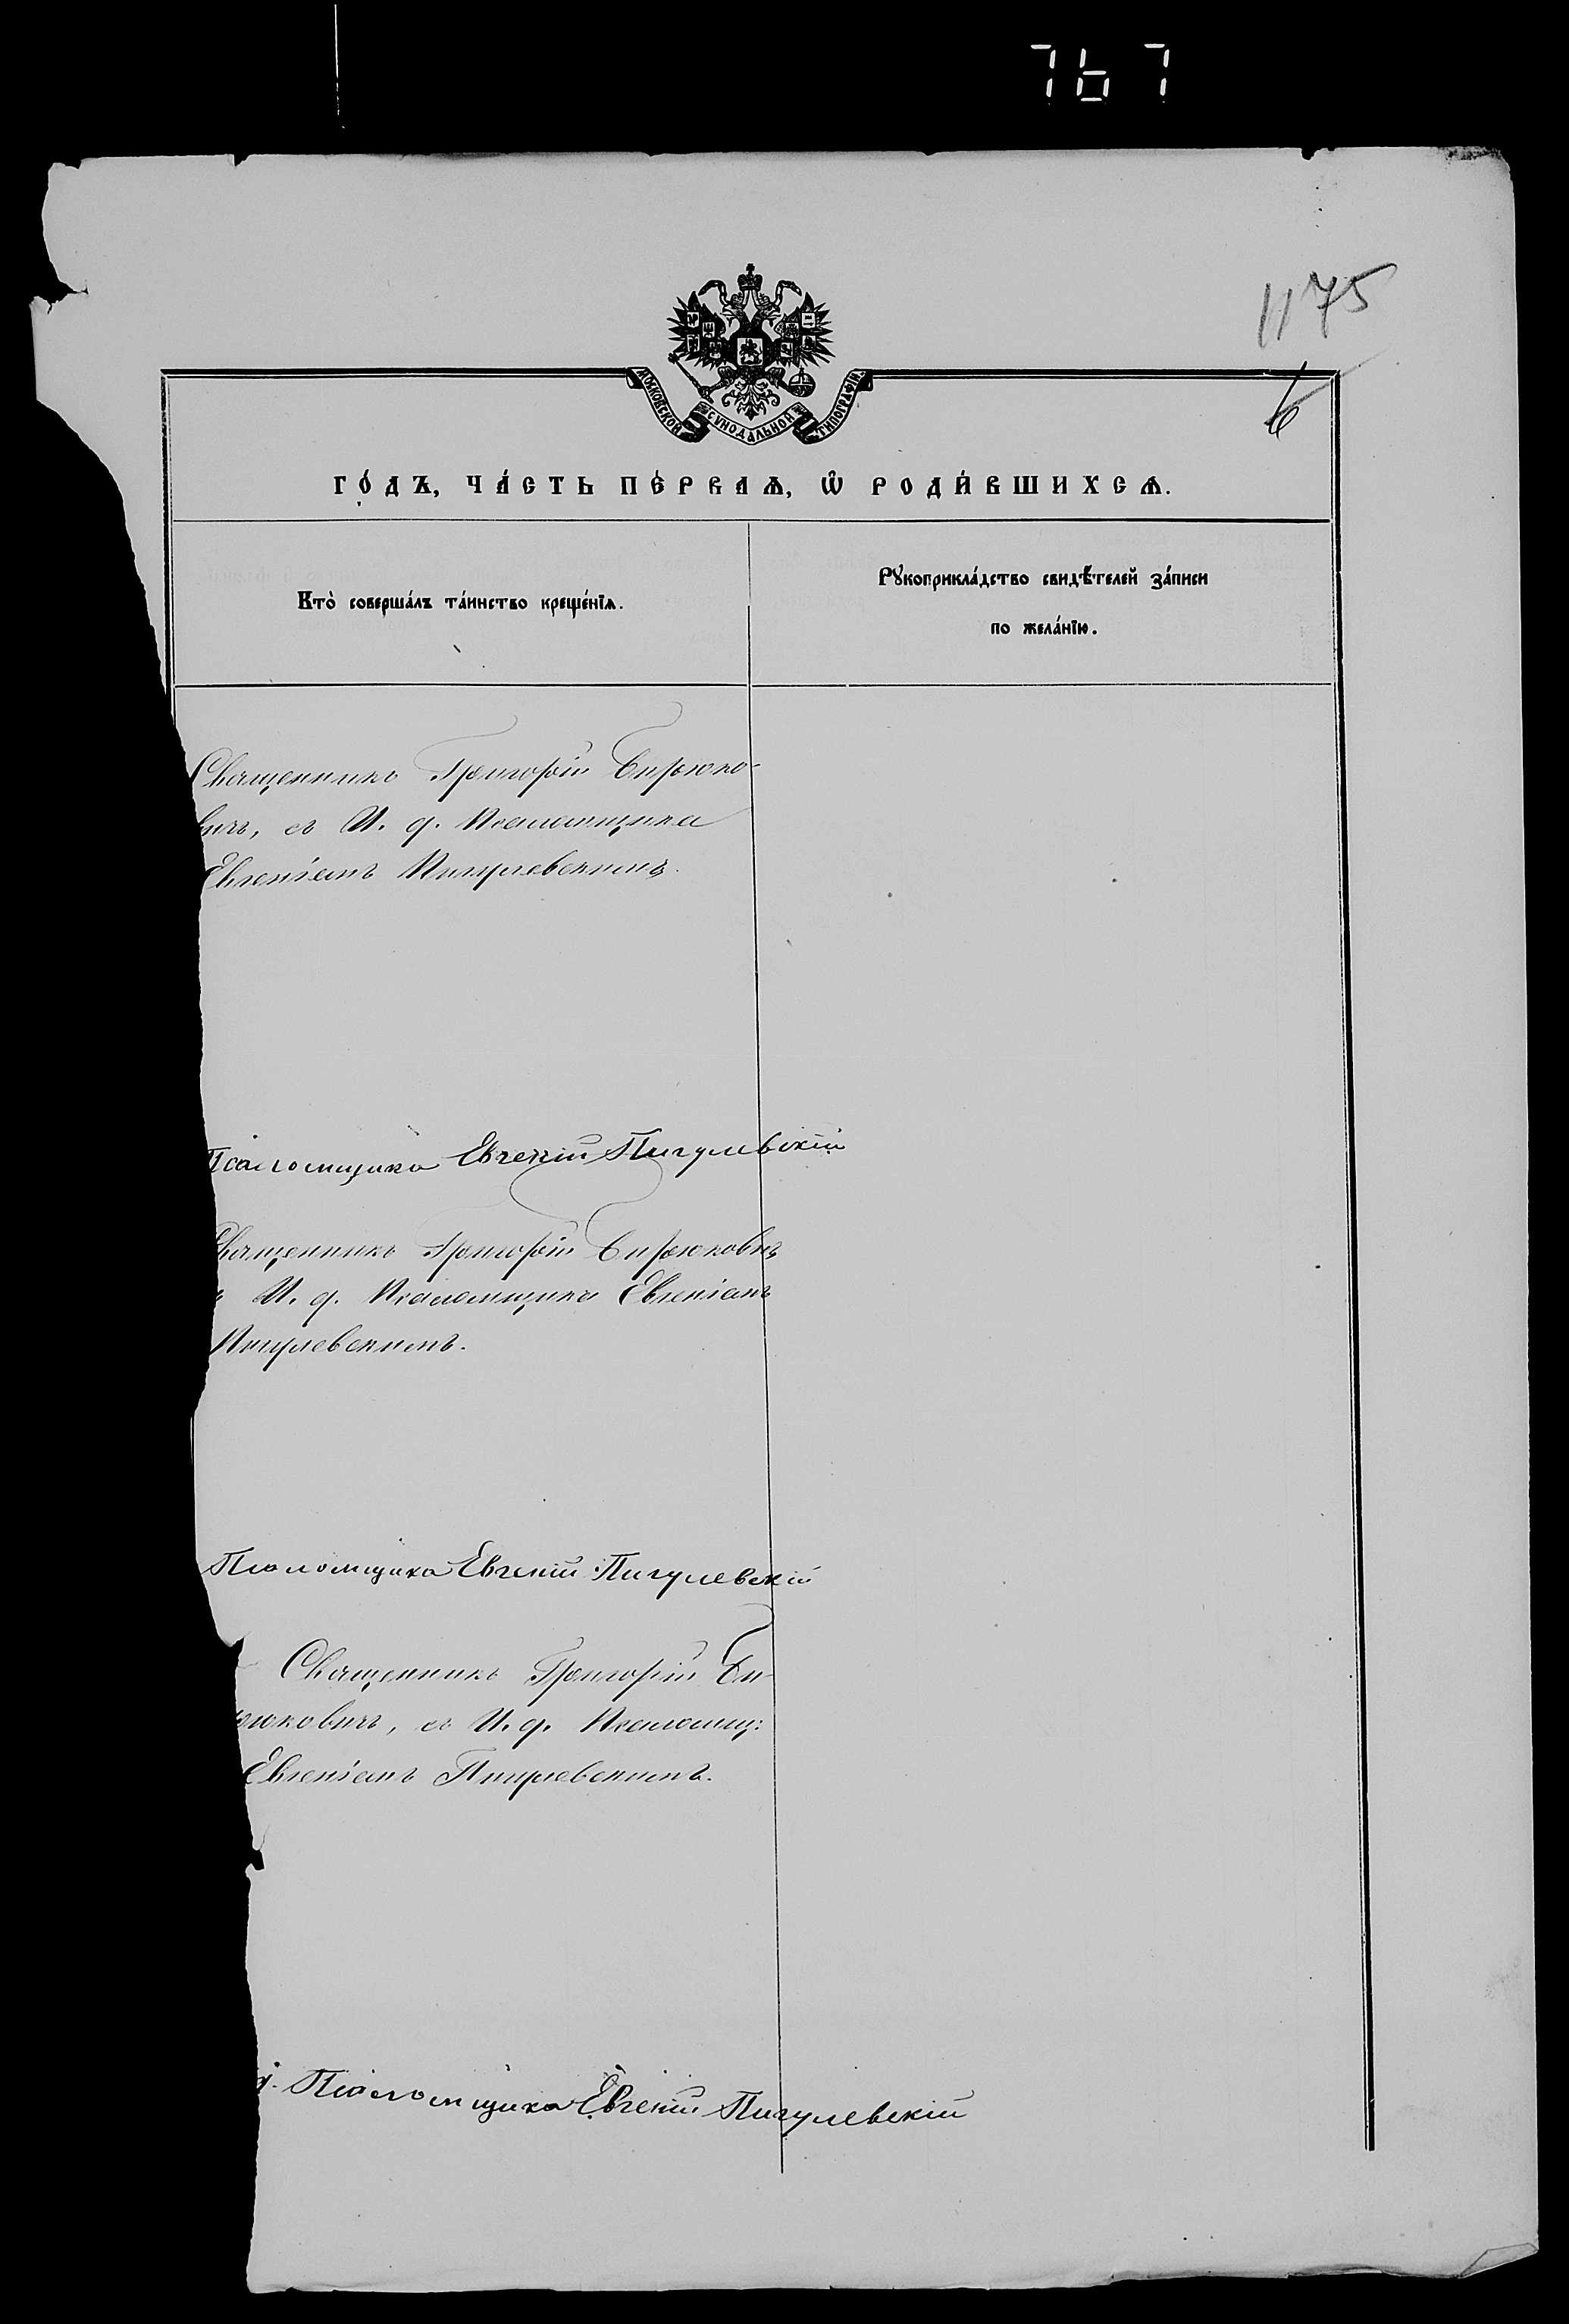 767
1175
6
МОСКОВСКОЙ СѴНОДАЛЬНОЙ ТИПОГРАФІИ.
ГО́ДЪ, ЧА́СТЬ ПЕ́РВАѦ, Ѡ҆ РОДИ́ВШИХСѦ.
Кто̀ соверша́лъ та́инство креще́нїѧ.
Рꙋкоприкла́дство свидѣ́телей за́писи
по жела́нїю.
Священникъ Григорій Бирюко-
вичъ, съ И. д. Псаломщика
Евгеніемъ Пигулевскимъ.
Псаломщика Евгеній Пигулевскій
Священникъ Григорій Бирюковичъ
ъ И. д. Псаломщика Евгеніемъ
Пигулевскимъ.
Псаломщика Евгеній Пигулевскій
Священникъ Григорій Би-
рюковичъ, съ И. д. Псаломщ:
Евгеніемъ Пигулевскимъ.
д. Псаломщика Евгеній Пигулевскій